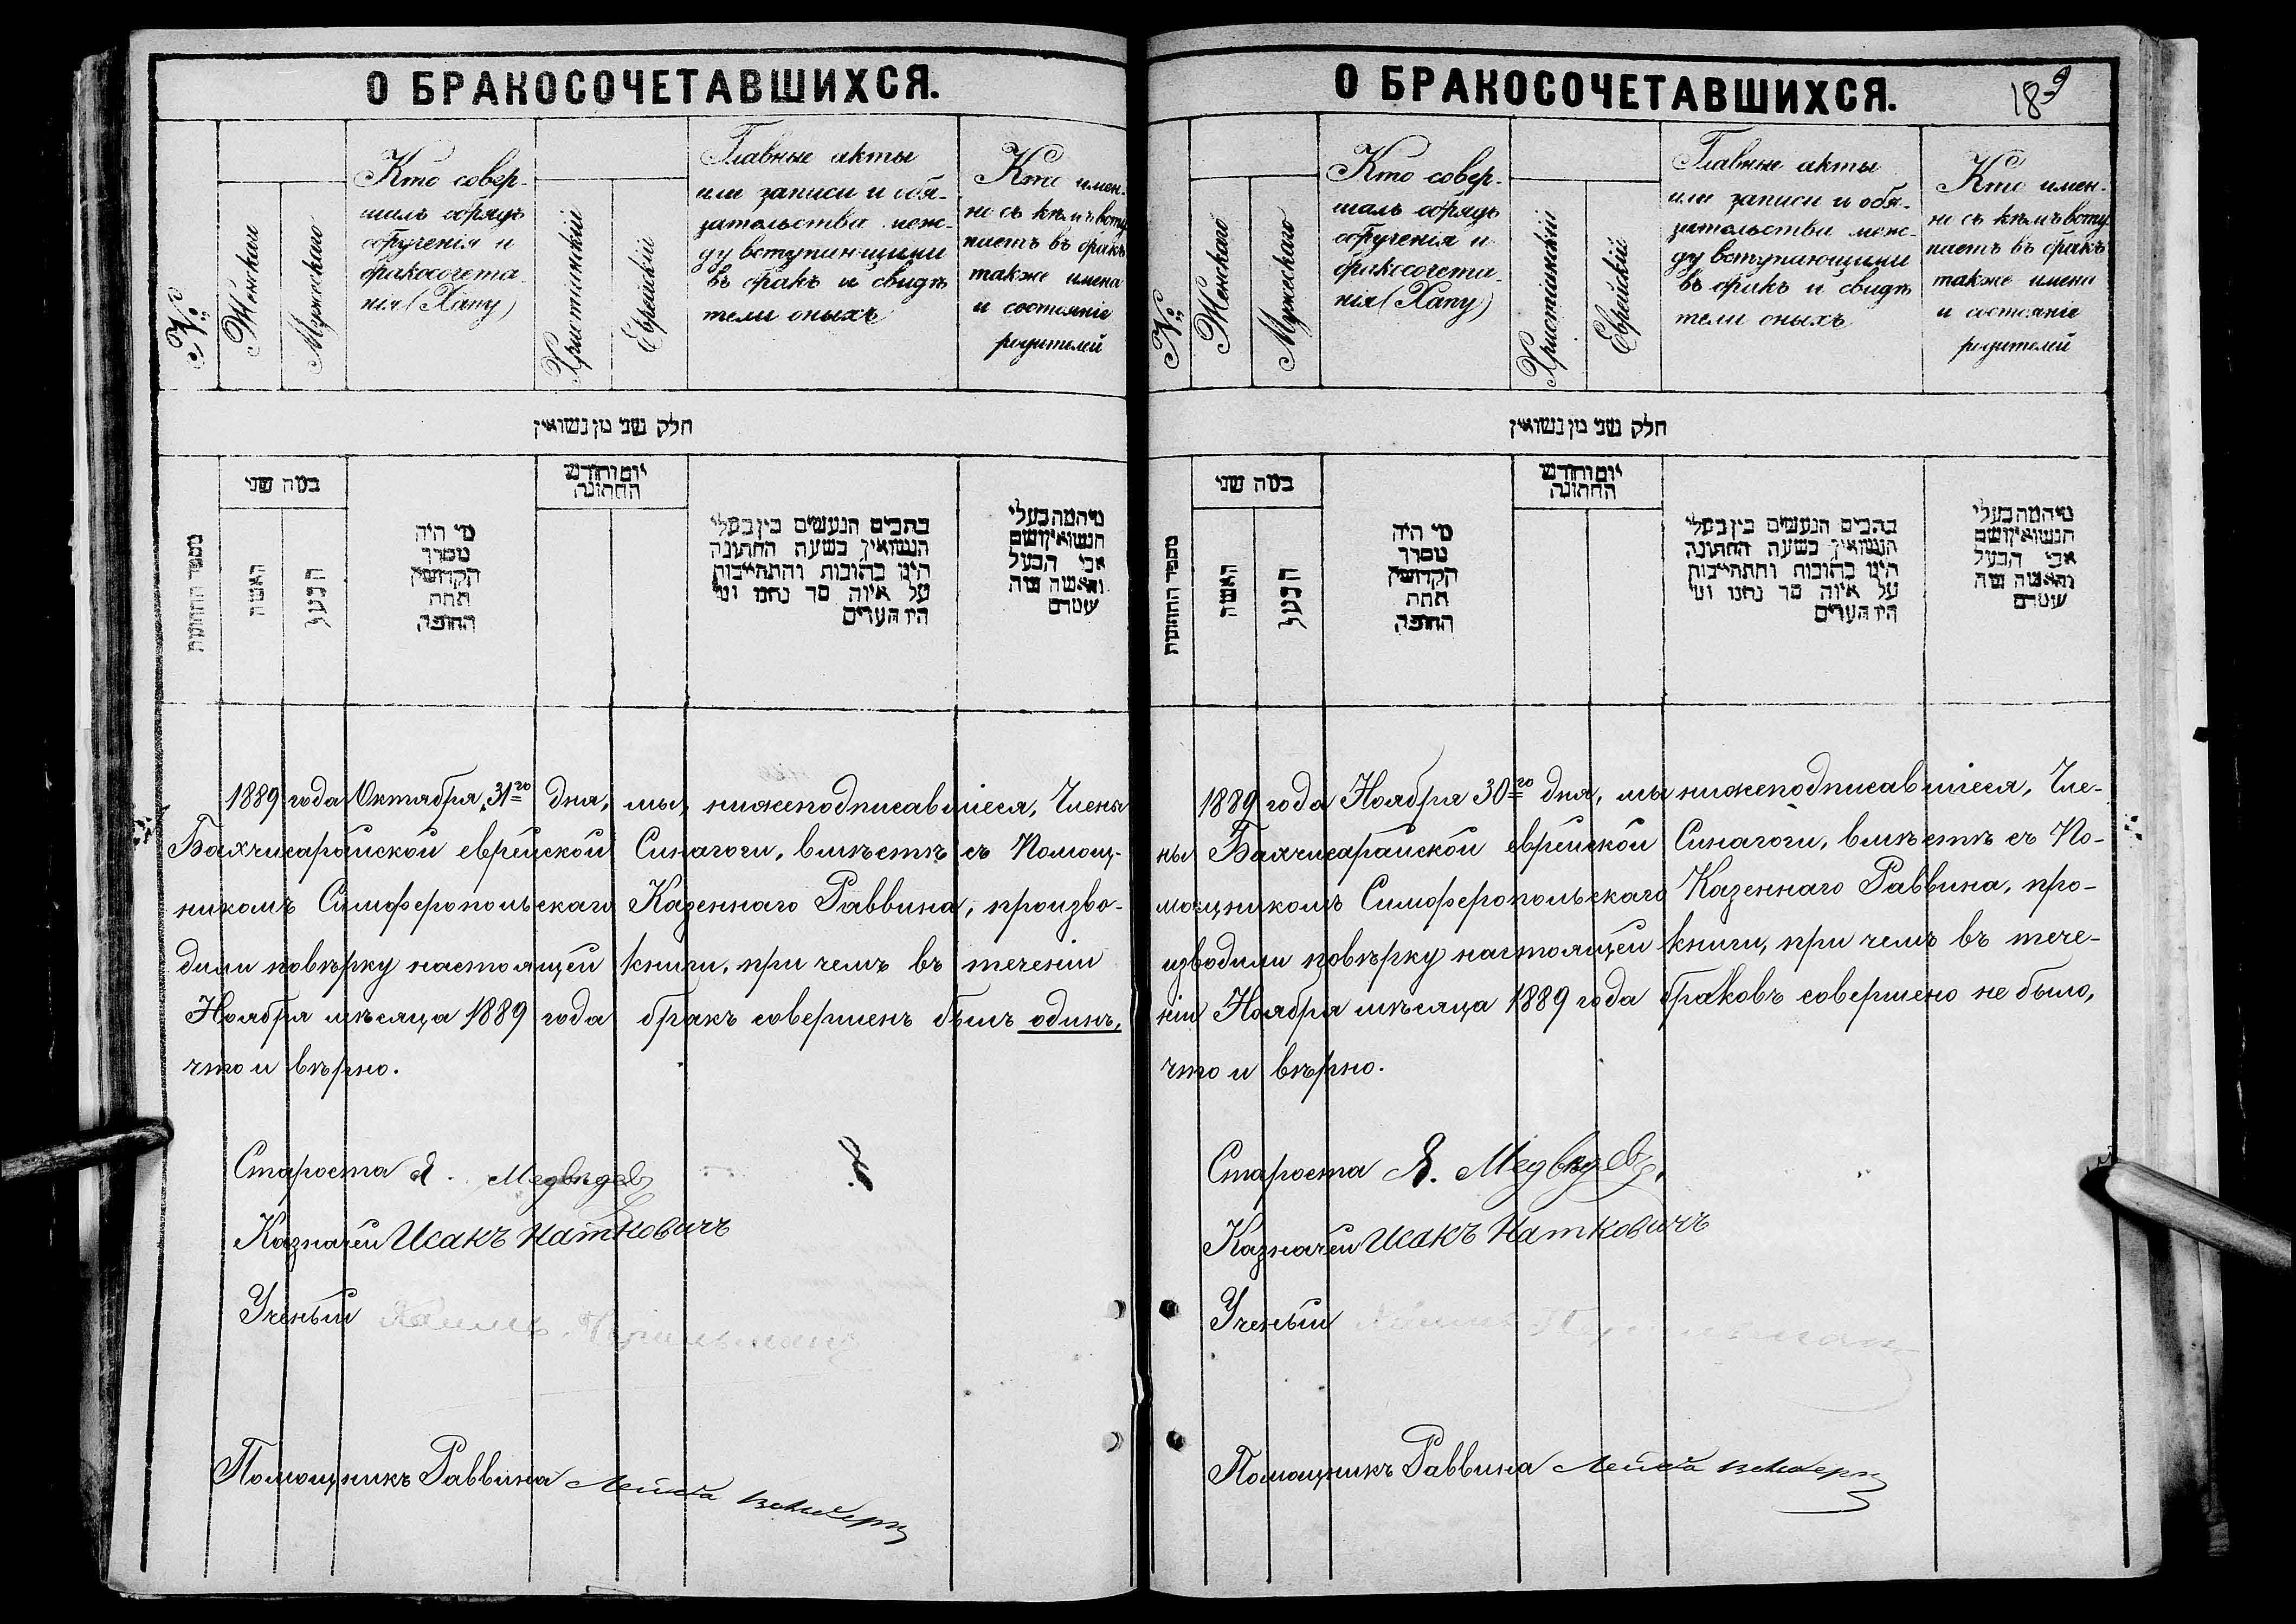 О БРАКОСОЧЕТАВШИХСЯ.
№
Женскаго
Мужескаго
Кто совер-
шалъ обрядъ
обрученія и
бракосочета
нія (Хапу)
Христіанскій
Еврейскій
Главные акты
или записи и обя-
зательства меж-
ду вступающими
въ бракъ и свидѣ
тели оныхъ
Кто имен-
но съ кѣмъ всту
паетъ въ бракъ
также имена
и состояніе
родителей
חלק שני מן נשואין
מספר החתונות
כמה שני
האשה
הבעל
מי היה
מסדר
הקדושין
תחת
החופה
יום וחודש
החתונה
כתבים הנעשים בין בעלי
הנשואין בשעת החתונה
היינו כתובות והתחייבות
על איזה סך נתנו ומי
היו העדים
מי המה בעלי
הנשואין ושם
אבי הבעל
והאשה ומה
שטרם
1889 года Октября 31го дня, мы, нижеподписавшіеся, Члены
Бахчисарайской еврейской Синагоги, вмѣстѣ съ Помощ-
никомъ Симферопольскаго Казеннаго Раввина, произво-
дили повѣрку настоящей книги, при чемъ въ теченіи
Ноября мѣсяца 1889 года бракъ совершенъ былъ одинъ,
что и вѣрно.
Староста Я. Медвѣдевъ
Казначей Исакъ Наткович
Ученый Хаимъ
Помощникъ Раввина Лейба
О БРАКОСОЧЕТАВШИХСЯ.
189
№
Женскаго
Мужескаго
Кто совер-
шалъ обрядъ
обрученія и
бракосочета-
нія (Хапу)
Христіанскій
Еврейскій
Главные акты
или записи и обя-
зательства меж-
ду вступающими
въ бракъ и свидѣ
тели оныхъ
Кто имен-
но съ кѣмъ всту
паетъ въ бракъ
также имена
и состояніе
родителей
חלק שני מן נשואין
מספר החתונות
כמה שני
האשה
הבעל
מי היה
מסדר
הקדושין
תחת
החופה
יום וחודש
החתונה
כתבים הנעשים בין בעלי
הנשואין בשעת החתונה
היינו כתובות והתחייבות
על איזה סך נתנו ומי
היו העדים
מי המה בעלי
הנשואין ושם
אבי הבעל
והאשה ומה
שטרם
1889 года Ноября 30го дня, мы нижеподписавшіеся, Чле-
ны Бахчисарайской еврейской Синагоги, вмѣстѣ съ По-
мощникомъ Симферопольскаго Казеннаго Раввина, про-
изводили повѣрку настоящей книги, при чемъ въ тече-
ніи Ноября мѣсяца 1889 года браковъ совершено не было,
что и вѣрно.
Староста Я. Медвѣдевъ.
Казначей Исакъ Наткович
Ученый Хаимъ
Помощникъ Раввина Лейба